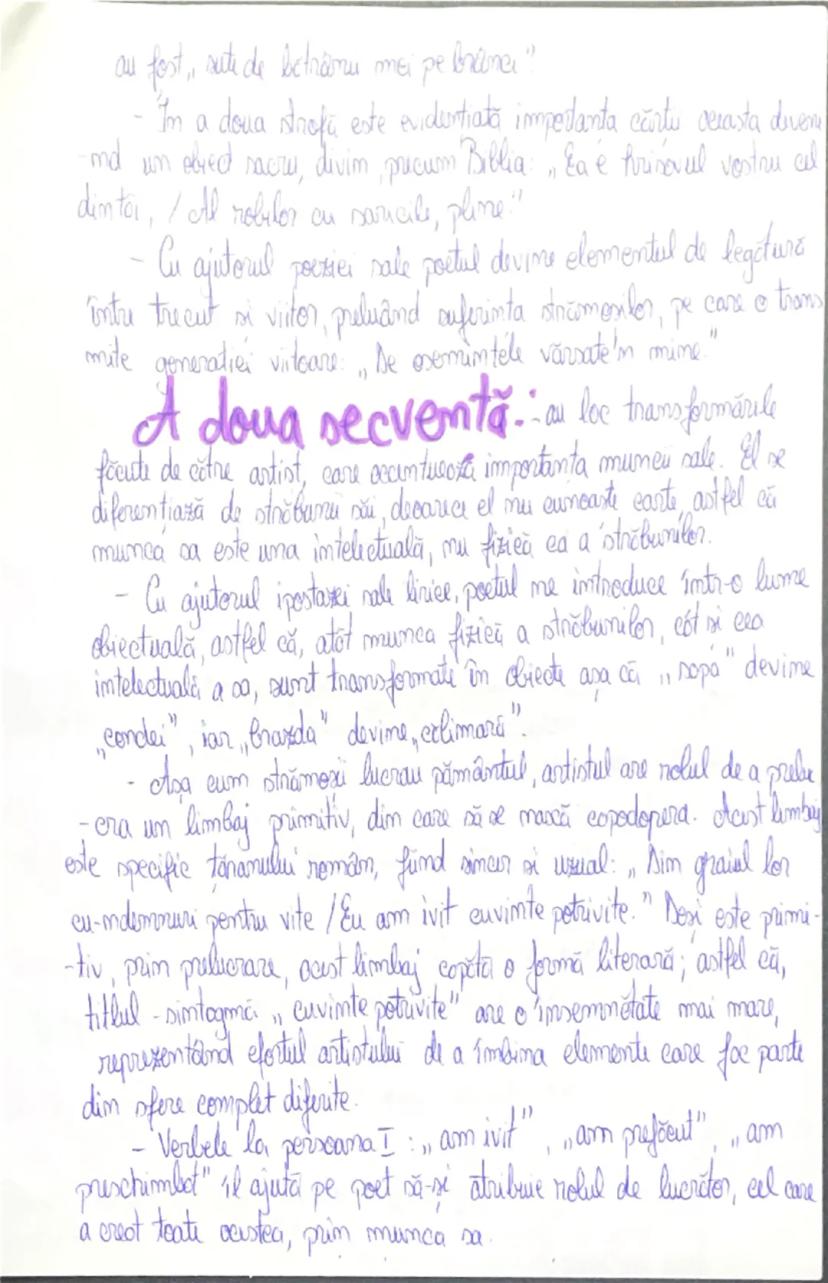 au fost „sute de bătrânii mei pe brânci"
- În a doua strofă este evidențiată importanța cărții aceasta deveni
-nd un obiect sacru, divin, precum Biblia: „Ea e hrisovul vostru cel
dintâi, / Al robilor cu saricile, pline."
- Cu ajutorul poeziei sale poetul devine elementul de legătură
între trecut și viitor, preluând suferința strămoșilor, pe care o trans
mite generației viitoare: „De osemintele vărsate'n mine."
A doua secvență: - au loc transformările
făcute de către artist, care accentuează importanța muncii sale. El se
diferențiază de străbunii săi, deoarece el nu cunoaște carte, astfel că
munca sa este una intelectuală, nu fizică ca a străbunilor.
- Cu ajutorul ipostazei sale lirice, poetul ne introduce într-o lume
obiectuală, astfel că, atât munca fizică a străbunilor, cât și cea
intelectuală a sa, sunt transformate în obiecte așa că „sapa" devine
„condei", iar „brazda" devine „călimară".
- Așa cum strămoșii lucrau pământul, artistul are rolul de a prelu
-cra un limbaj primitiv, din care să se nască capodopera. Acest limbaj
este specific țăranului român, fiind sincer și uzual: „Din graiul lor
cu-ndemnuri pentru vite / Eu am ivit cuvinte potrivite." Deși este primi-
-tiv, prin prelucrare, acest limbaj capătă o formă literară; astfel că,
titlul - sintagmă „cuvinte potrivite" are o însemnătate mai mare,
reprezentând efortul artistului de a îmbina elemente care fac parte
din sfere complet diferite.
- Verbele la persoana I : „am ivit", „am prefăcut", „am
preschimbat" îl ajută pe poet să-și atribuie rolul de lucrător, cel care
a creat toate acestea, prin munca sa.